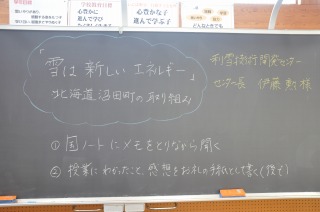 心豊かに
進んで学び
心豊かな子
進んで学ぶ子
「雪は 新しい エネルギー」
北海道沼田町の取り組み
利雪技術開発センター
センター長 伊藤 勲 様
① 国ノートにメモをとりながら聞く
② 授業にわかったこと、感想をお礼の手紙として書く(後で)